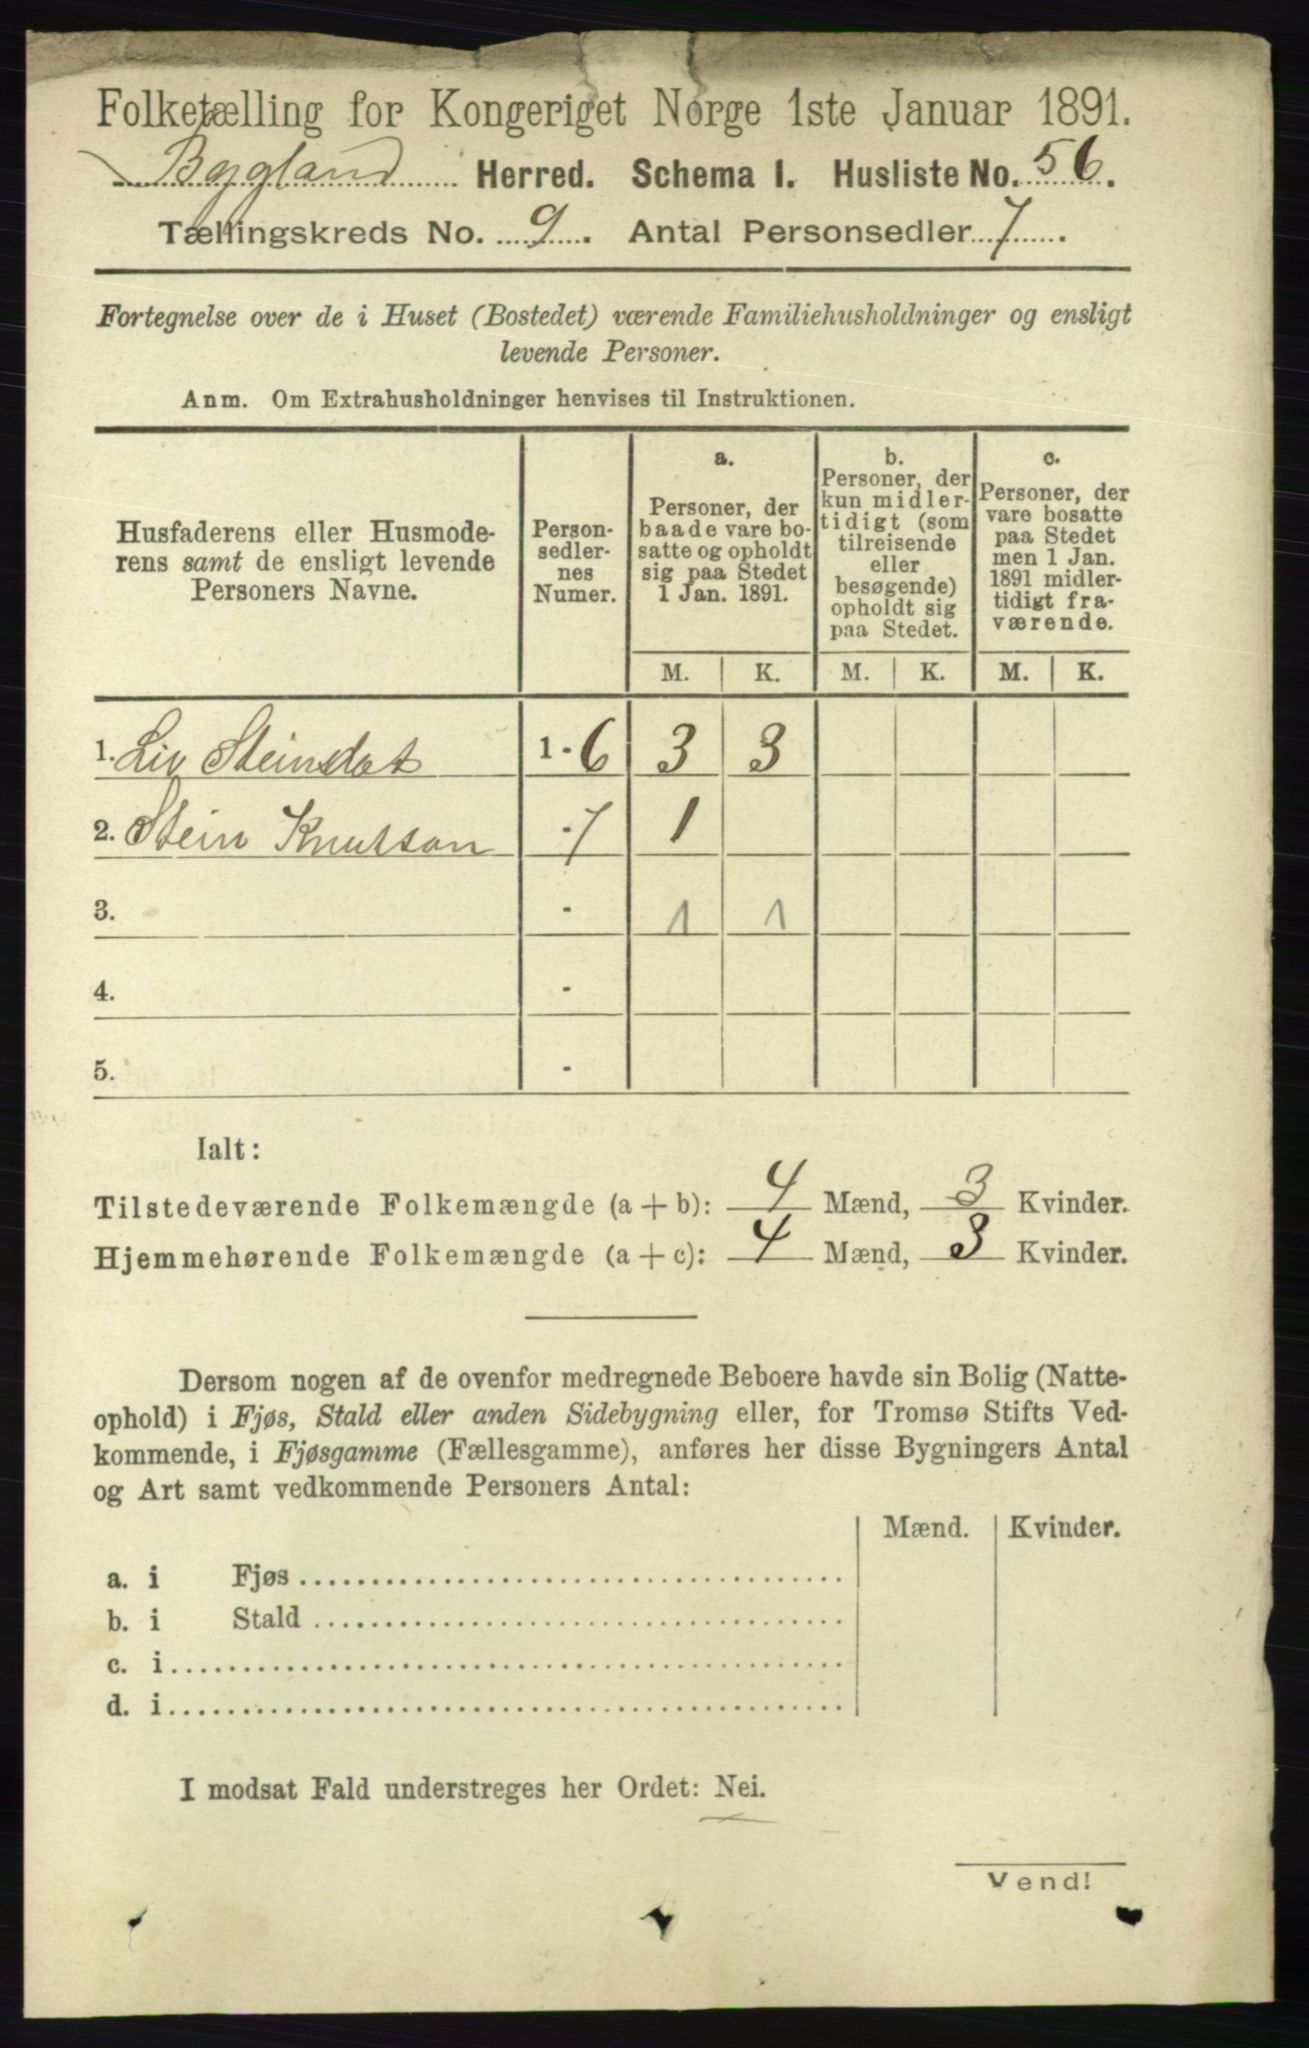 Folketælling for Kongeriget Norge 1ste Januar 1891.
Bygland Herred. Schema I. Husliste No. 56.
Tællingskreds No. 9. Antal Personsedler 7.
Fortegnelse over de i Huset (Bostedet) værende Familiehusholdninger og ensligt
levende Personer.
Anm. Om Extrahusholdninger henvises til Instruktionen.
Husfaderens eller Husmode-
rens samt de ensligt levende
Personers Navne.
Person-
sedler-
nes
Numer.
a.
Personer, der
baade vare bo-
satte og opholdt
sig paa Stedet
1 Jan. 1891.
b.
Personer, der
kun midler-
tidigt (som
tilreisende
eller
besøgende)
opholdt sig
paa Stedet.
c.
Personer, der
vare bosatte
paa Stedet
men 1 Jan.
1891 midler-
tidigt fra-
værende.
M. K. M. K. M. K.
1. Liv Steinsdat 1 - 6 3 3
2. Stein Knutson - 7 1
3. - 1 1
4. -
5. -
Ialt:
Tilstedeværende Folkemængde (a + b): 4 Mænd, 3 Kvinder.
Hjemmehørende Folkemængde (a + c): 4 Mænd, 3 Kvinder.
Dersom nogen af de ovenfor medregnede Beboere havde sin Bolig (Natte-
ophold) i Fjøs, Stald eller anden Sidebygning eller, for Tromsø Stifts Ved-
kommende, i Fjøsgamme (Fællesgamme), anføres her disse Bygningers Antal
og Art samt vedkommende Personers Antal:
Mænd. Kvinder.
a. i Fjøs
b. i Stald
c. i
d. i
I modsat Fald understreges her Ordet: Nei.
Vend!